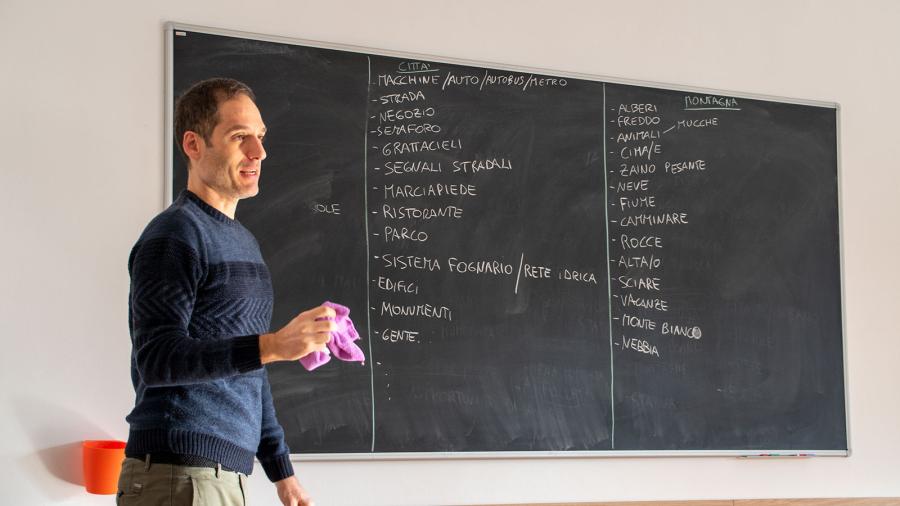 CITTA'
- MACCHINE/AUTO/AUTOBUS/METRO
- STRADA
- NEGOZIO
- SEMAFORO
- GRATTACIELI
- SEGNALI STRADALI
- MARCIAPIEDE
- RISTORANTE
- PARCO
- SISTEMA FOGNARIO/RETE IDRICA
- EDIFICI
- MONUMENTI
- GENTE..
MONTAGNA
- ALBERI
- FREDDO
- ANIMALI - MUCCHE
- CIMA/E
- ZAINO PESANTE
- NEVE
- FIUME
- CAMMINARE
- ROCCE
- ALTA/O
- SCIARE
- VACANZE
- MONTE BIANCO
- NEBBIA